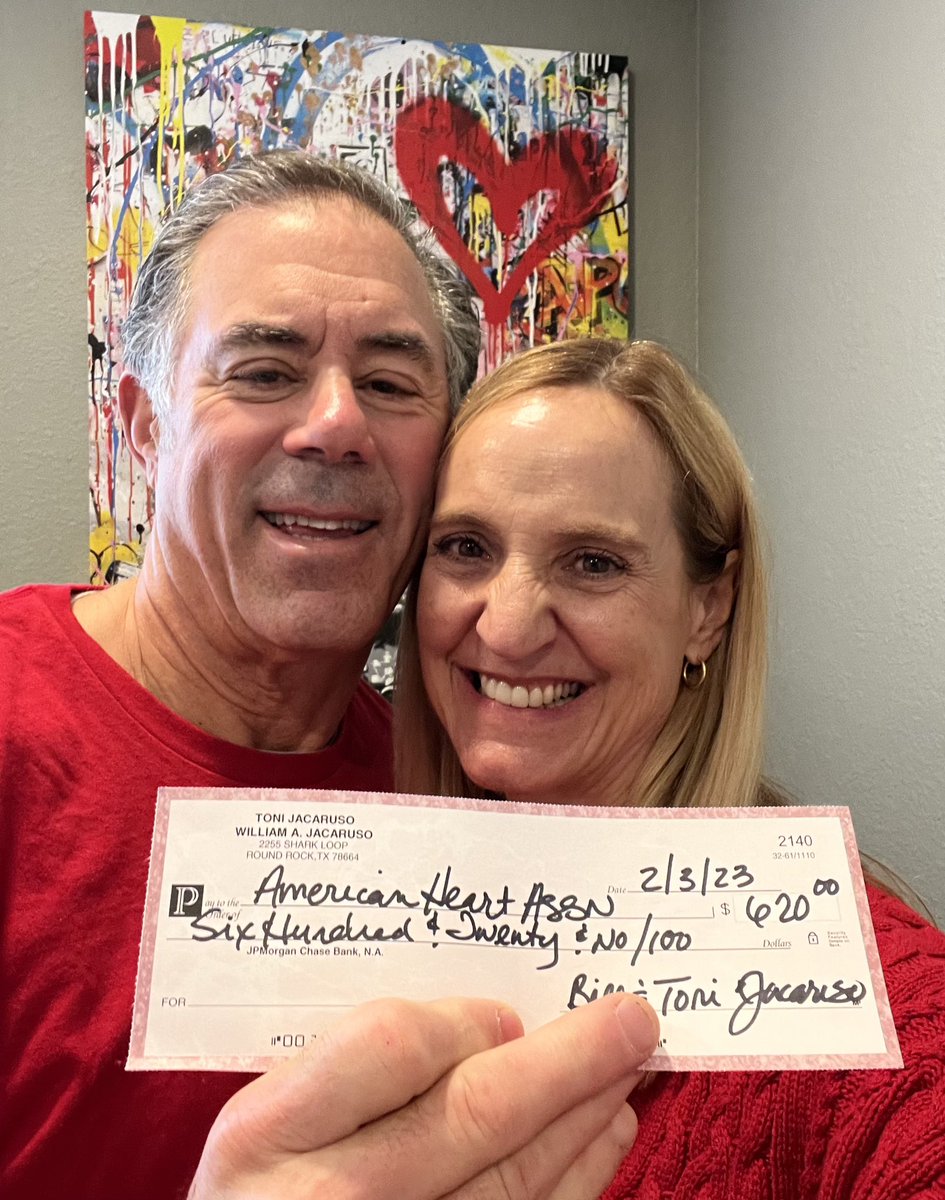 AP
TONI JACARUSO
WILLIAM A. JACARUSO
2255 SHARK LOOP
ROUND ROCK, TX 78664
2140
32-61/1110
Date 2/3/23
P Pay to the Order of American Heart Assn $ 620 00
Six Hundred & Twenty & No/100 Dollars
Security Features Details on Back.
JPMorgan Chase Bank, N.A.
FOR
Bill & Toni Jacaruso
⑈00